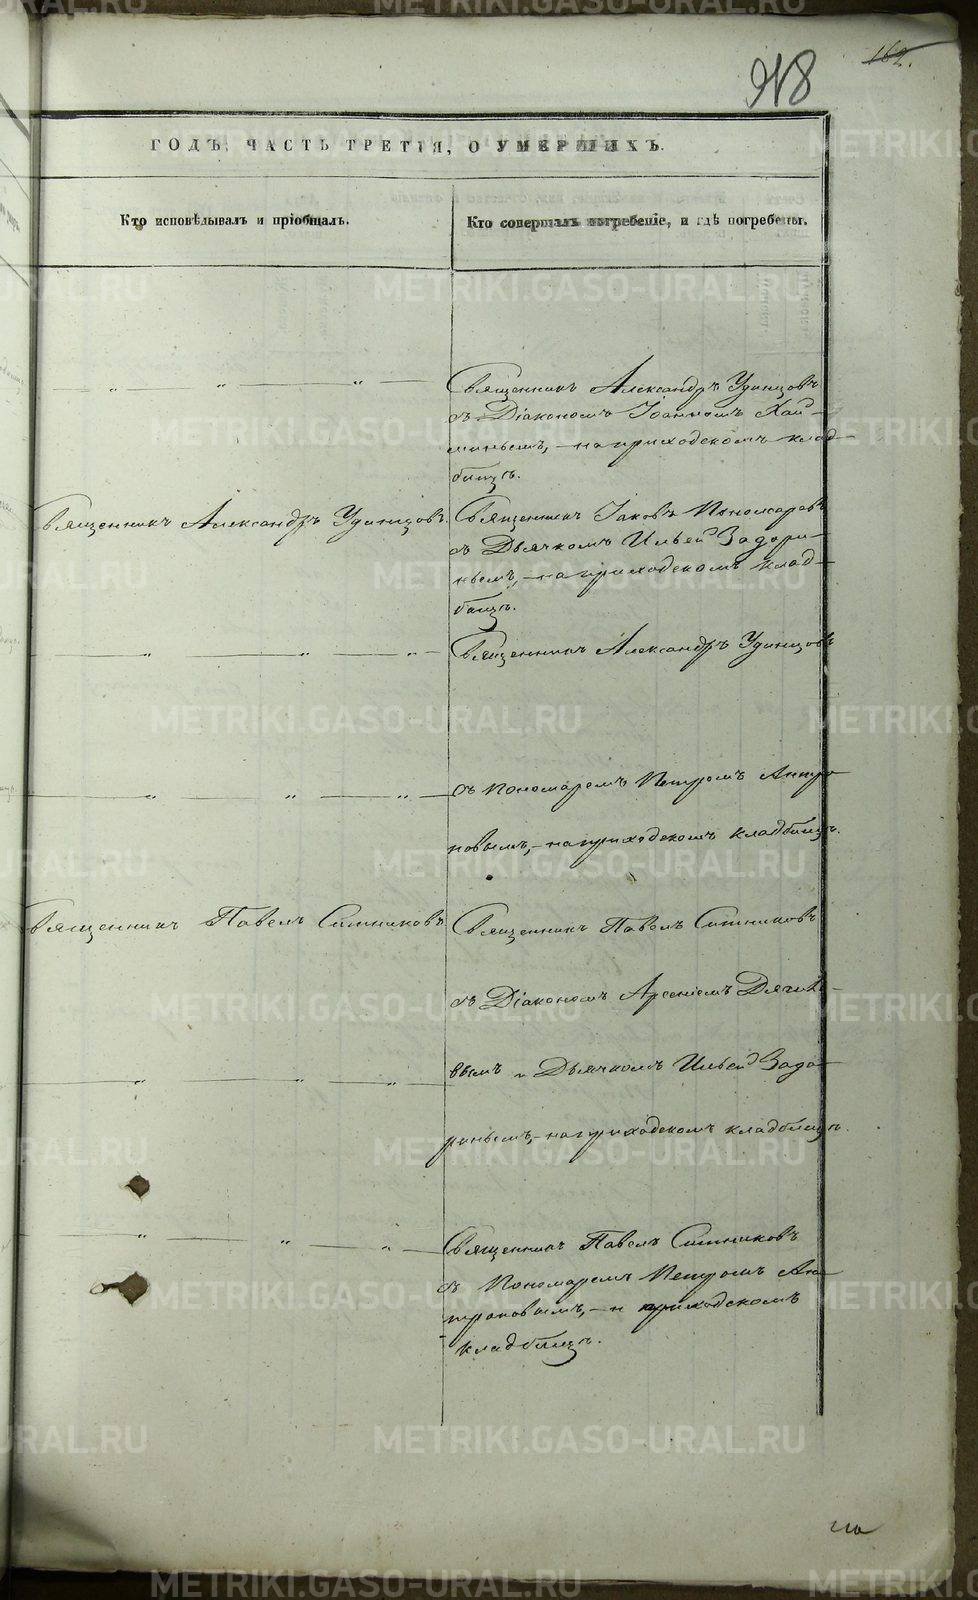 918
162.
ГОДЪ, ЧАСТЬ ТРЕТІЯ, О УМЕРШИХЪ.
Кто исповѣдывалъ и пріобщалъ.
Кто совершалъ погребеніе, и гдѣ погребены.
Священникъ Александръ Удинцовъ
съ Діакономъ Іоанномъ Хай-
миньемъ,- на приходскомъ клад-
бищѣ.
Священникъ Александръ Удинцовъ
Священникъ Іаковъ Пономаревъ
съ Дьячкомъ Ильей Задори-
нымъ,- на приходскомъ клад-
бищѣ.
Священникъ Александръ Удинцовъ
съ Пономаремъ Петромъ Антро-
повымъ,- на приходскомъ кладбищѣ.
Священникъ Павелъ Ситниковъ
Священникъ Павелъ Ситниковъ
съ Діакономъ Арсеніемъ Дягиле-
вымъ и Дьячкомъ Ильей Задо-
ринымъ,- на приходскомъ кладбищѣ.
Священникъ Павелъ Ситниковъ
съ Пономаремъ Петромъ Ан-
троповымъ,- н приходскомъ
кладбищѣ.
METRIKI.GASO-URAL.RU